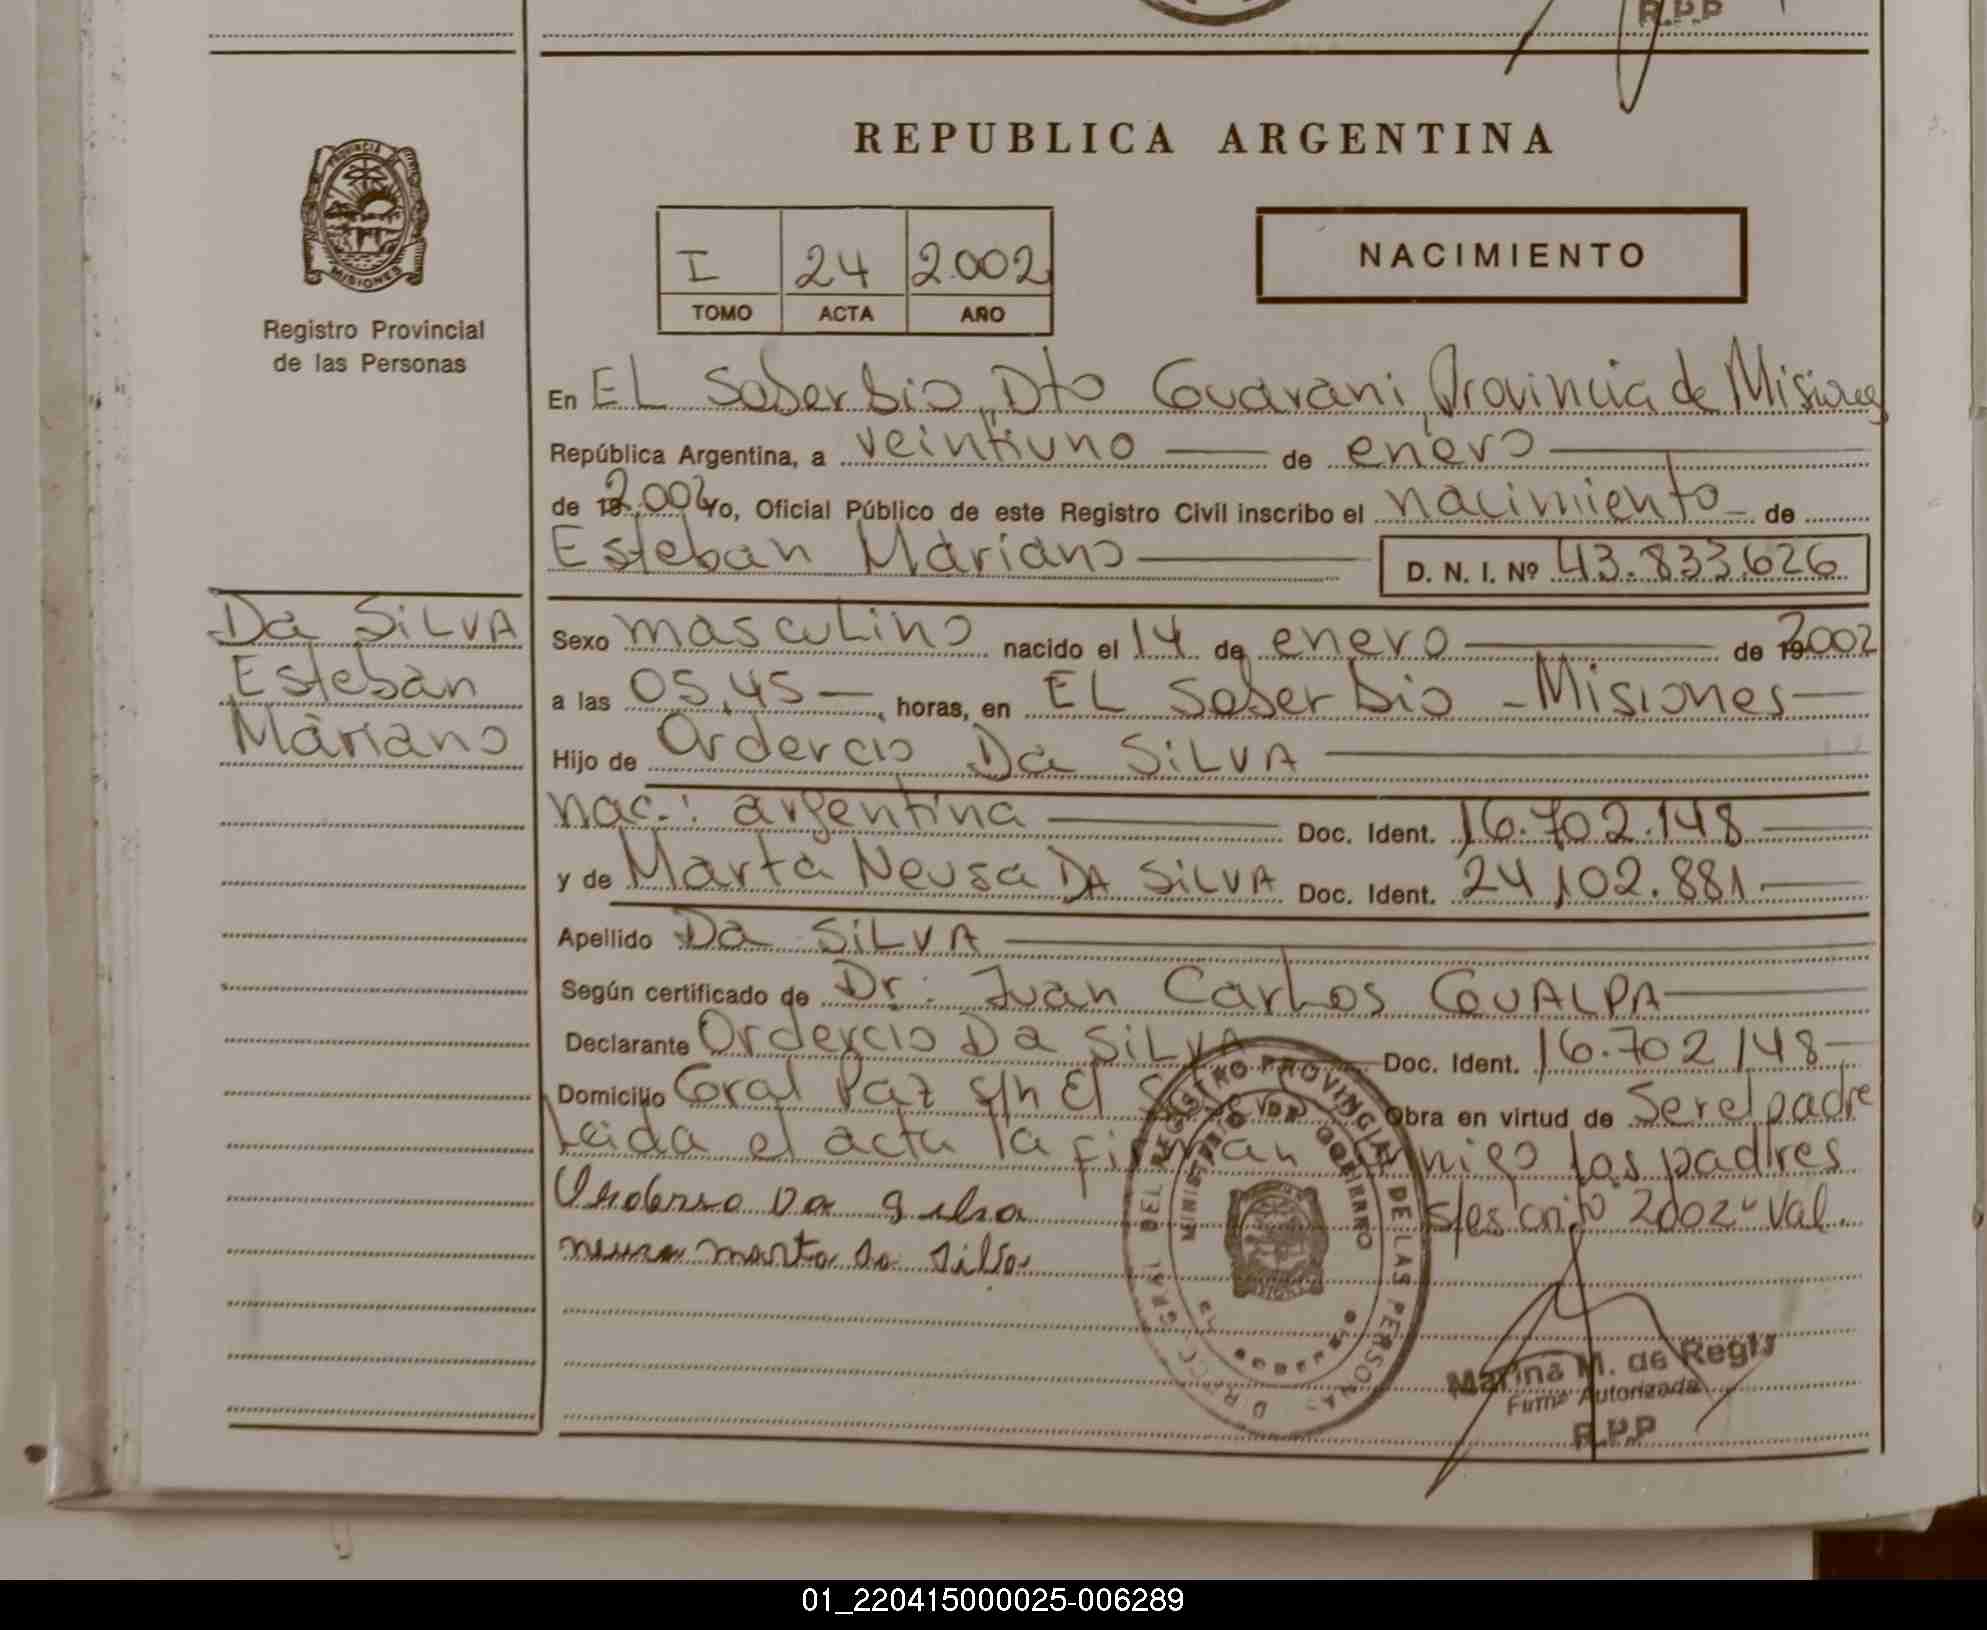 R.P.P
REPUBLICA ARGENTINA
PROVINCIA DE
MISIONES
Registro Provincial
de las Personas
I 24 2.002
TOMO ACTA AÑO
NACIMIENTO
En EL Soberbio, Dto Guarani, Provincia de Misiones
República Argentina, a veintiuno de enero
de 19 2.002 Yo, Oficial Público de este Registro Civil inscribo el nacimiento de
Esteban Mariano D. N. I. Nº 43.833.626
Da SiLVA
Esteban
Mariano
Sexo masculino nacido el 14 de enero de 19 2002
a las 05,45 , horas, en EL Soberbio - Misiones
Hijo de Ordercio Da SiLVA
nac.: argentina Doc. Ident. 16.702.148
y de Marta Neusa DA SiLVA Doc. Ident. 24.102.881
Apellido Da SiLVA
Según certificado de Dr. Juan Carlos GUALPA
Declarante Ordercio Da SiLVA Doc. Ident. 16.702.148
Domicilio Gral Paz s/n El Obra en virtud de Ser el padre
Leida el acta la firman conmigo los padres
s/escrito 2002 - Val.
da silva
marta da silva
REGISTRO PROVINCIAL DE LAS PERSONAS
MINISTERIO DE GOBIERNO
Marina M. de Regly
Firma Autorizada
R.P.P
01_220415000025-006289